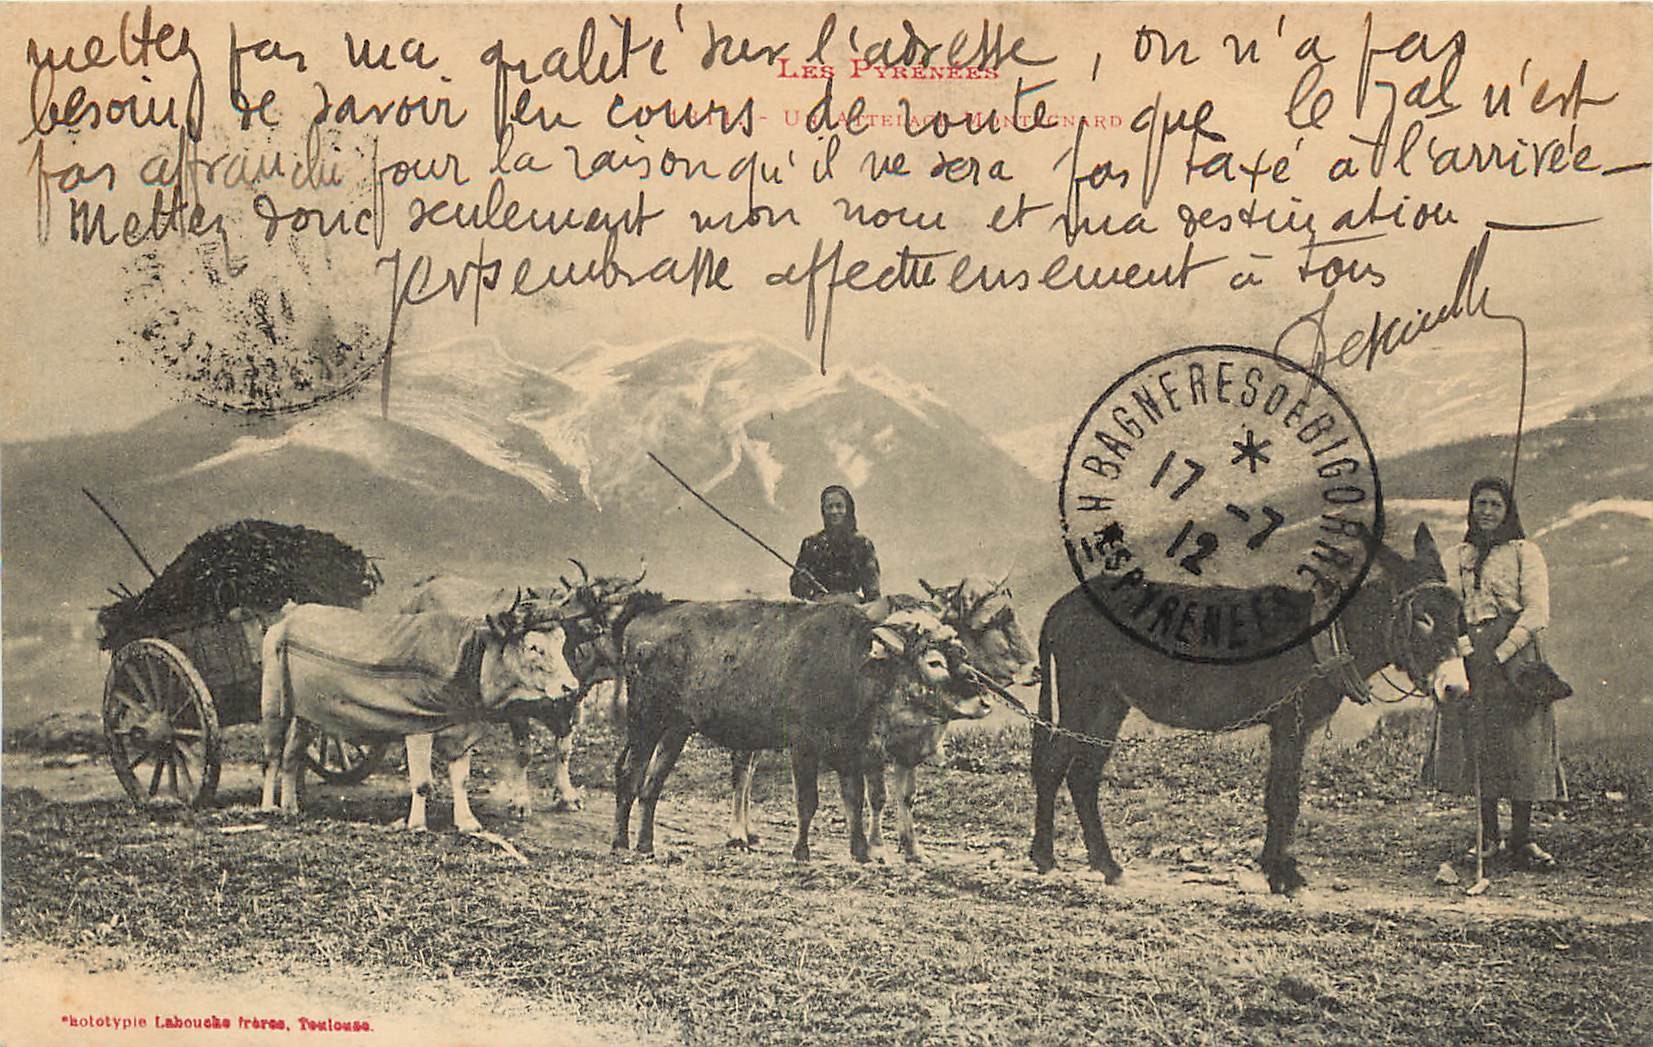 mettez pas ma qualité sur l'adresse, on n'a pas
LES PYRÉNÉES
besoin de savoir en cours de route, que le Jal n'est
- UN ATTELAGE MONTAGNARD
pas affranchi pour la raison qu'il ne sera pas taxé à l'arrivée —
Mettez donc seulement mon nom et ma destination —
embrasse affectueusement à tous
BAGNERES DE BIGORRE
17 -7
12
HES PYRENEES
Phototypie Labouche frères, Toulouse.